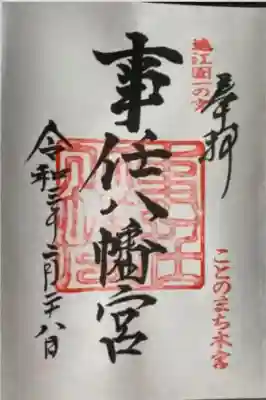 奉拝
遠江國一の宮
ことのまち本宮
事任八幡宮
令和三年二月二十八日